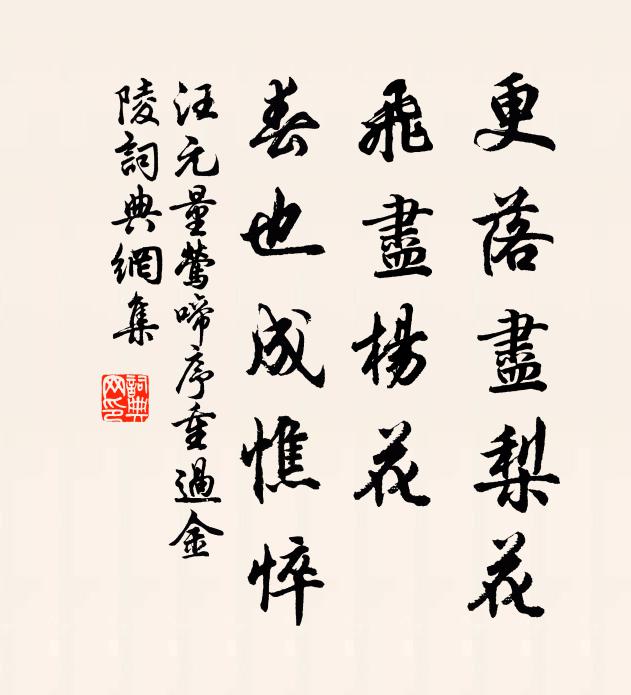 更落盡梨花
飛盡楊花
春也成憔悴
汪元量鶯啼序重過金
陵詞典網集
詞典
网印